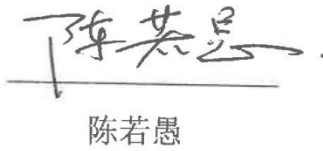 陈若愚
陈若愚